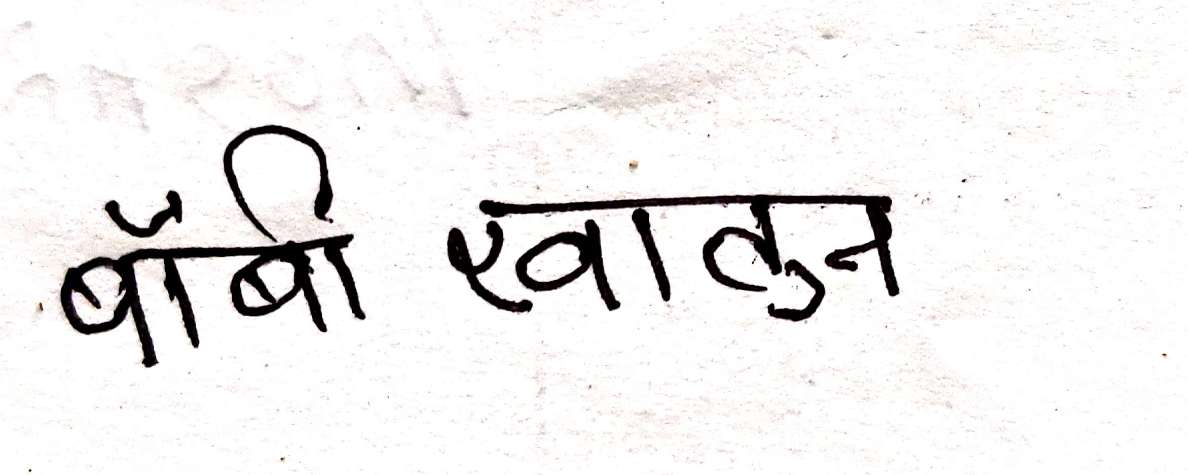 बॉबी खातुन